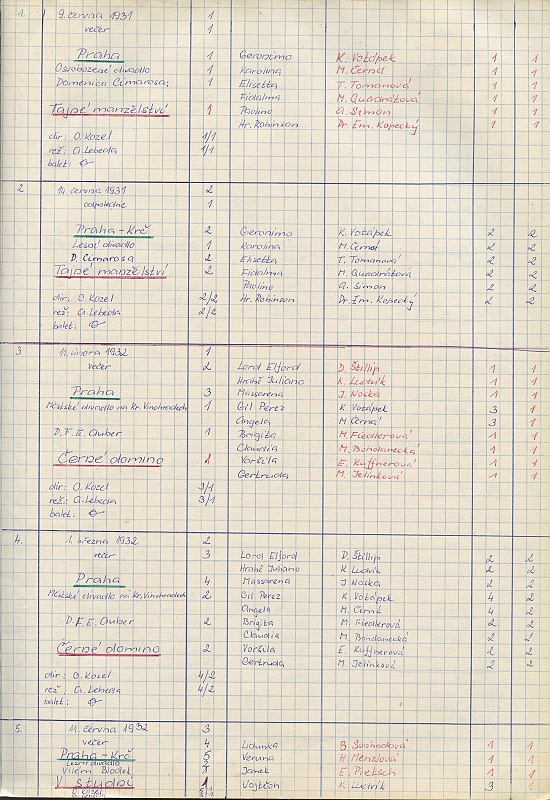 1. 9. června 1931 1
večer 1
Praha 1 Geronimo K. Votápek 1 1
Osvobozené divadlo 1 Karolina M. Černá 1 1
Domenico Cimarosa: 1 Elisetta T. Tomanová 1 1
Fidalma M. Quadrátová 1 1
Tajné manželství 1 Paolino A. Šimon 1 1
Hr. Robinson Dr. Em. Kopecký 1 1
dir: O. Kozel 1/1
rež: A. Lebeda 1/1
balet:
2 14. června 1931 2
odpoledne 1
Praha-Krč 2 Geronimo K. Votápek 2 2
Lesní divadlo 1 Karolina M. Černá 2 2
D. Cimarosa 2 Elisetta T. Tomanová 2 2
Tajné manželství 2 Fidalma M. Quadrátová 2 2
Paolino A. Šimon 2 2
dir: O. Kozel 2/2 Hr. Robinson Dr. Em. Kopecký 2 2
rež: A. Lebeda 2/2
balet:
3. 11. února 1932 1
večer 2 Lord Elford D. Štillip 1 1
Hrabě Juliano K. Ludvík 1 1
Praha 3 Massarena J. Noska 1 1
Městské divadlo na Kr. Vinohradech 1 Gil Perez K. Votápek 3 1
Angela M. Černá 3 1
D. F. E. Auber 1 Brigita M. Fiedlerová 1 1
Claudia M. Bohdanecká 1 1
Černé domino 1 Voršila E. Kuffnerová 1 1
Gertruda M. Jelínková 1 1
dir: O. Kozel 3/1
rež: A. Lebeda 3/1
balet:
4. 1. března 1932 2
večer 3 Lord Elford D. Štillip 2 2
Hrabě Juliano K. Ludvík 2 2
Praha 4 Massarena J. Noska 2 2
Městské divadlo na Kr. Vinohradech 2 Gil Perez K. Votápek 4 2
Angela M. Černá 4 2
D. F. E. Auber 2 Brigita M. Fiedlerová 2 2
Claudia M. Bohdanecká 2 2
Černé domino 2 Voršila E. Kuffnerová 2 2
Gertruda M. Jelínková 2 2
dir: O. Kozel 4/2
rež: A. Lebeda 4/2
balet:
5. 11. června 1932 3
večer 4 Lidunka B. Svobodová 1 1
Praha-Krč 5 Veruna H. Menzlová 1 1
Lesní divadlo
Vilém Blodek 1 Janek E. Pietsch 1 1
V studni 1 Vojtěch K. Ludvík 3 1
O. Kozel